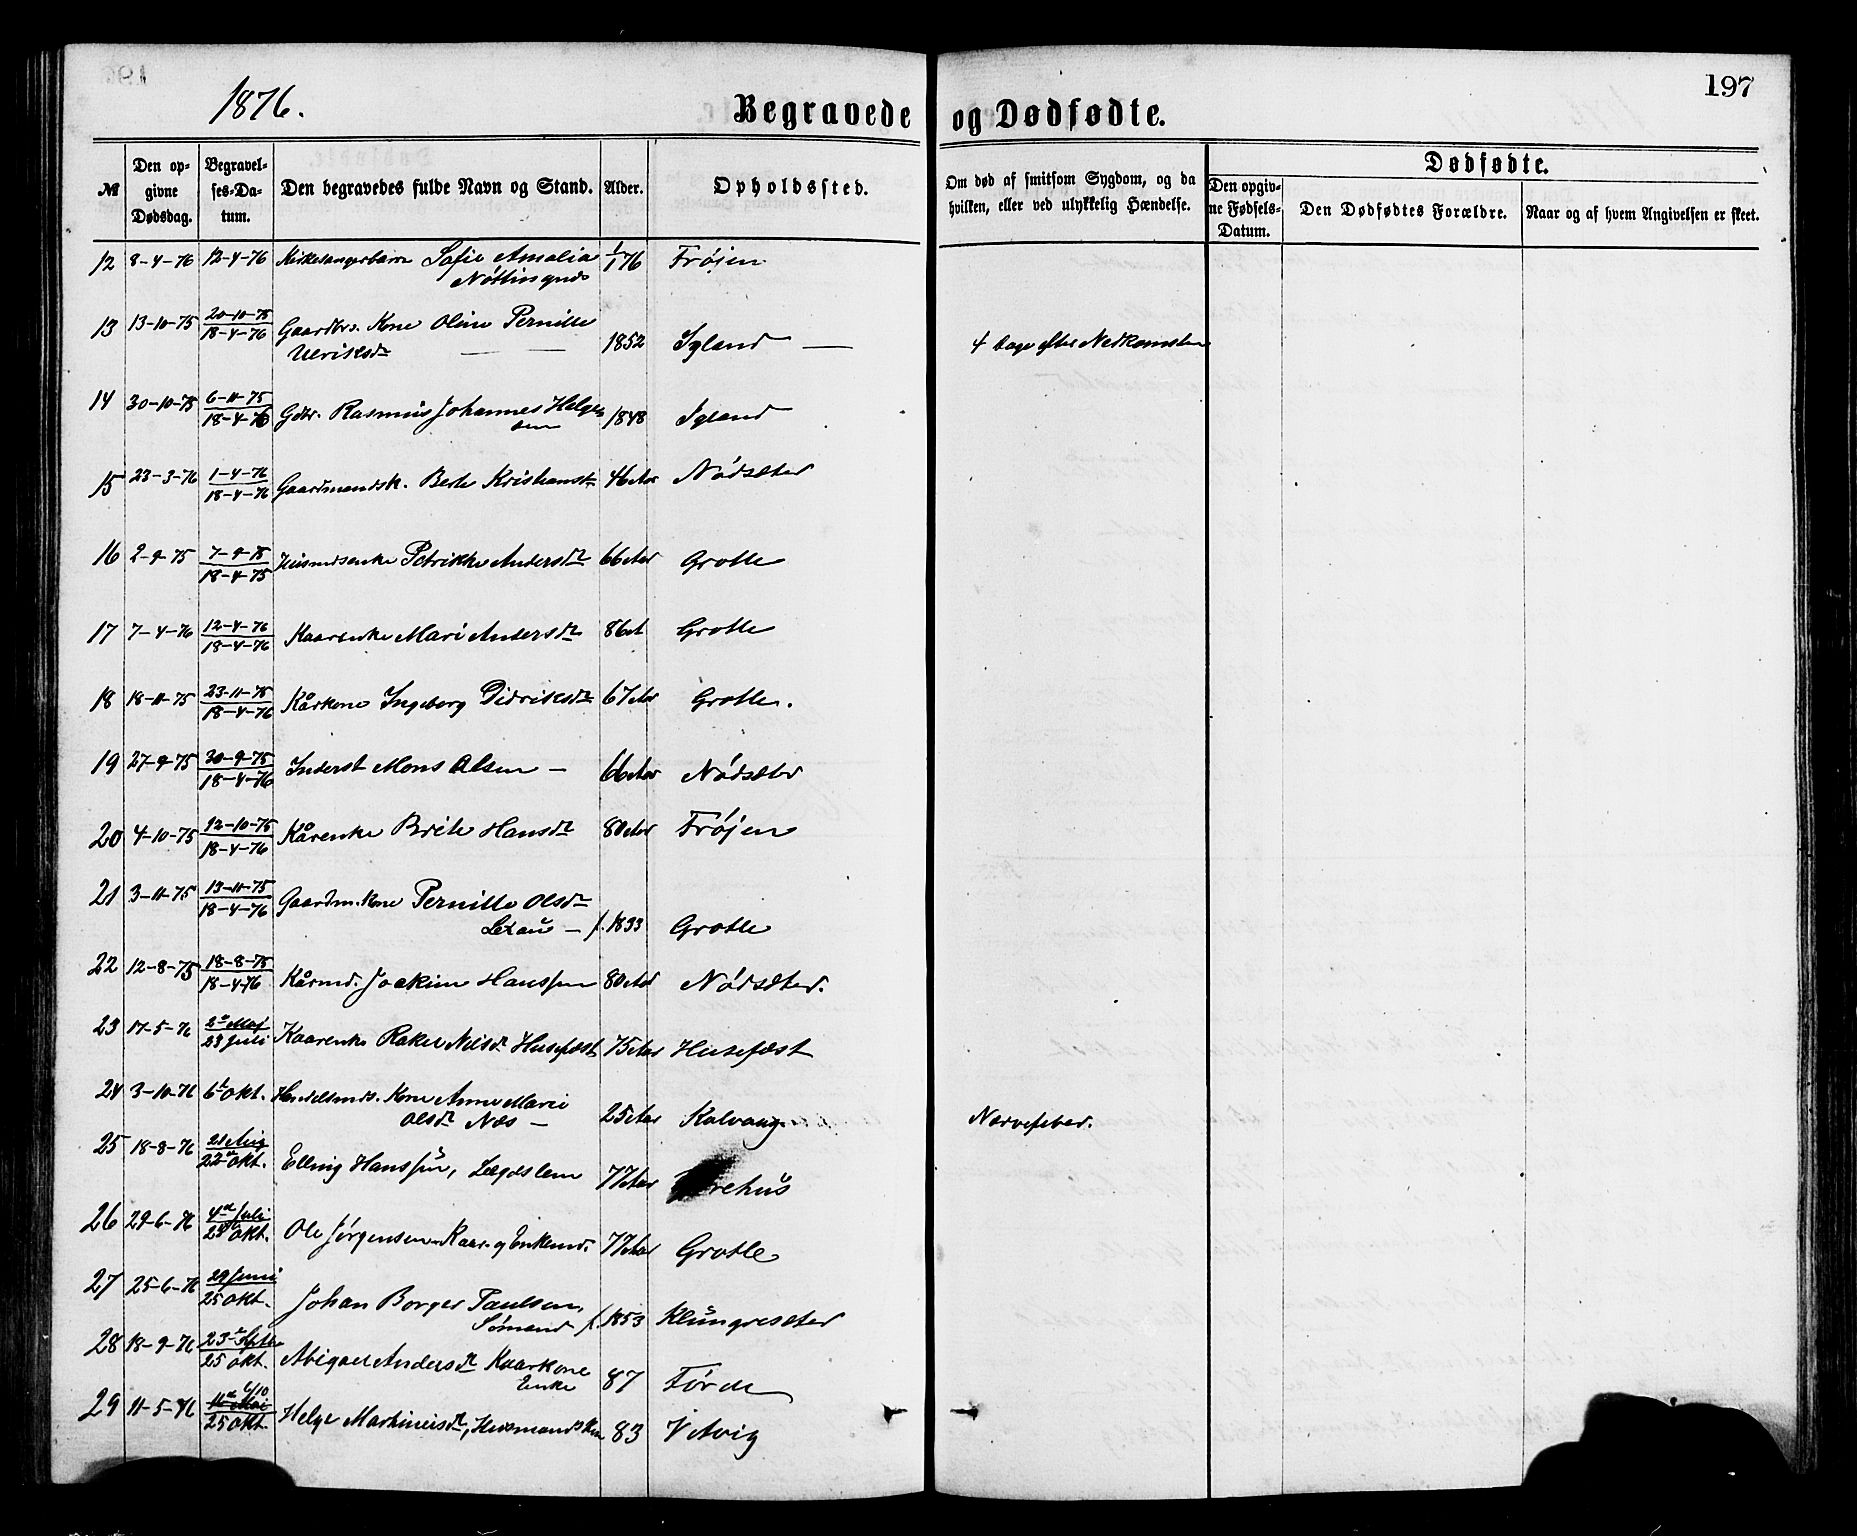 197
1876.
Begravede og Dødfødte.
№
Den opgivne Dødsdag.
Begravelses-Datum.
Den begravedes fulde Navn og Stand.
Alder.
Opholdssted.
Om død af smitsom Sygdom, og da hvilken, eller ved ulykkelig Hændelse.
Dødfødte.
Den opgivne Fødsels-Datum.
Den Dødfødtes Forældre.
Naar og af hvem Angivelsen er skeet.
12 8-4-76 12-4-76 Kirkesangerbarn Sofie Amalia 1/1 76 Frøjen
13 13-10-75 20-10-75 Gaardbrs. Kone Oline Pernille
18-4-76 Ulriksdr 1852 Igland 4 Dage efter Nedkomsten
14 30-10-75 6-11-75 Gdbr. Rasmus Johannes Helge
18-4-76 sen 1848 Igland
15 23-3-76 1-4-76 Gaardmandsk. Berte Kristiansdr 46 Aar Nødsæter
18-4-76
16 2-9-75 7-9-75 Husmdsenke Petrikke Andersdr 66 Aar Grotle
18-4-75
17 7-4-76 12-4-76 Kaarenke Mari Andersdr 86 A Grotle
18-4-76
18 18-11-75 23-11-75 Kårkone Ingeborg Didriksdr 67 Aar Grotle.
18-4-76
19 27-9-75 30-9-75 Inderst Mons Olsen – 66 Aar Nødsæter
18-4-76
20 4-10-75 12-10-75 Kårenke Brite Hansdr 80 Aar Frøjen
18-4-76
21 3-11-75 13-11-75 Gaardm. Kone Pernille Olsdr
18-4-76 f. 1833 Grotle
22 12-8-75 18-8-75 Kårmd. Joakim Hanssen 80 Aar Nødsæter.
18-4-76
23 17-5-76 Kaarenke Rakel Nilsdr Husefæst 75 Aar Husefæst
23 Juli
24 3-10-76 6t Okt. Handelsmds. Kone Anne Marie
Olsdr Næs – 25 Aar Kalvaag Nervefeber.
25 18-8-76 21 Aug Elling Hanssen, Lægdslem 77 Aar
22d Okt.
26 29-6-76 4de Juli Ole Jørgensen Kaar- og Enkemd. 77 Aar Grotle
24 Okt.
27 25-6-76 29 Juni Johan Borger Paulsen,
25 Okt. Sømand f. 1853 Klungresæter
28 18-9-76 23 Septbr Abigael Andersdr Kaarkone
25 Okt. Enke 87 Førde
29 11-5-76 6/10
Mai Helge Martinusdr, Husmands 83 Vetvig
25 Okt.